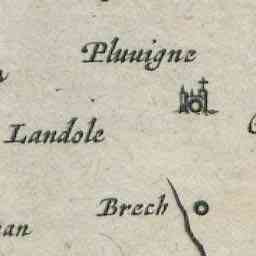 Pluuigne
Landole
Brech